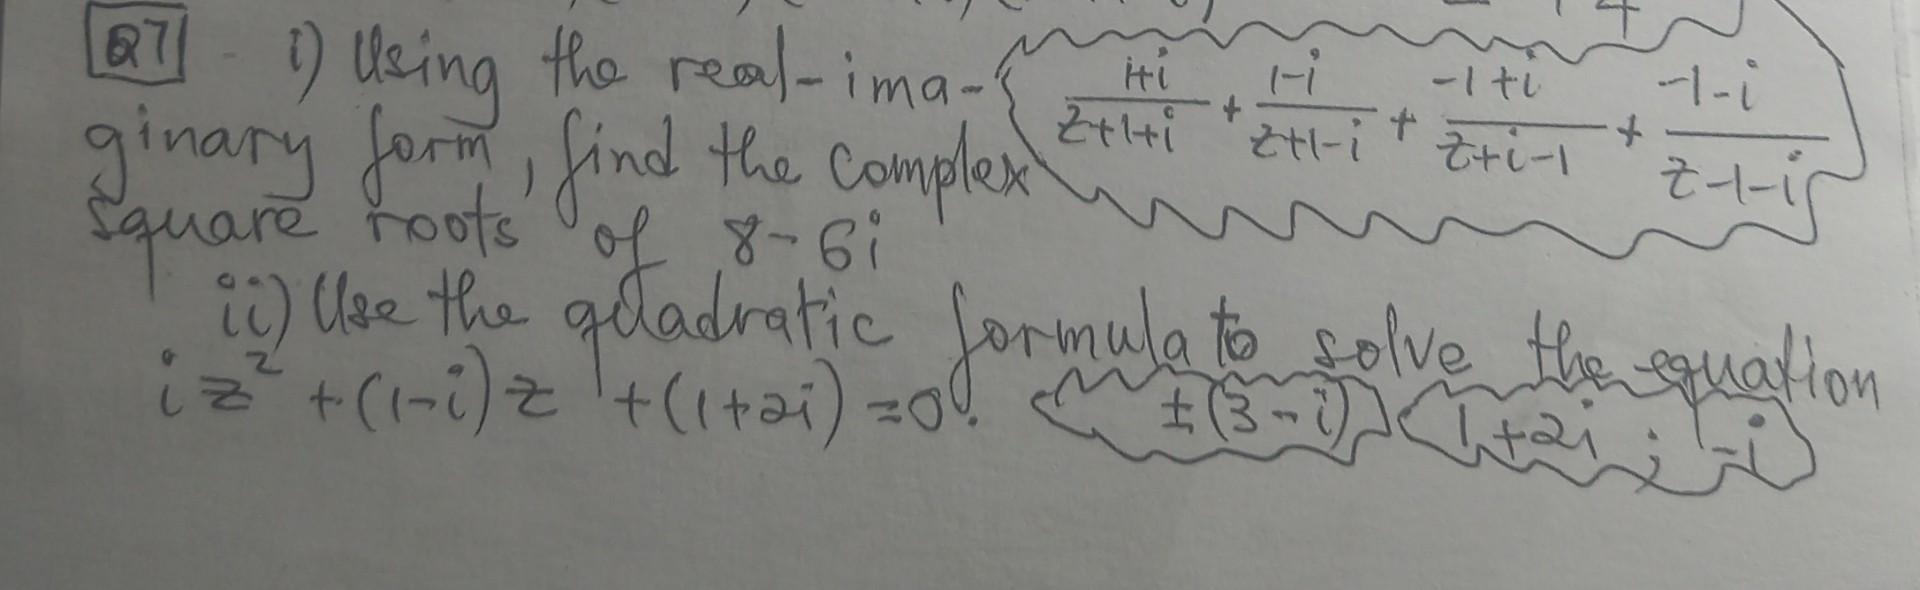 Q7 i) Using the real-ima-
ginary form, find the complex
square roots of 8-6i
1+i/z+1+i + 1-i/z+1-i + -1+i/z+i-1 + -1-i/z-1-i
ii) Use the quadratic formula to solve the equation
iz² + (1-i)z + (1+2i) = 0. ±(3-i) 1+2i ; -i